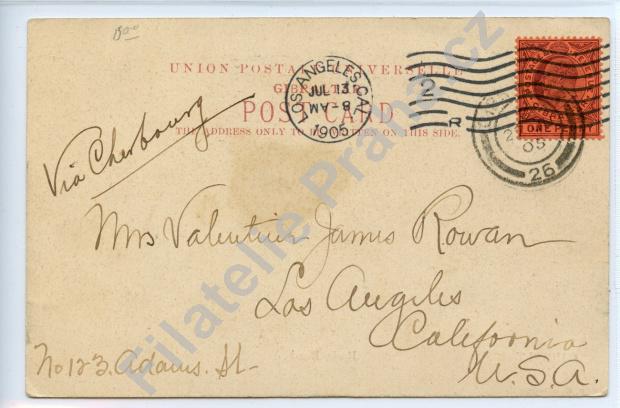 UNION POSTALE UNIVERSELLE
GIBRALTAR
POST CARD
THE ADDRESS ONLY TO BE WRITTEN ON THIS SIDE.
LOS ANGELES, CAL.
JUL 13
8-AM
1905
2
R
ONE PENNY
05
26
Via Cherbourg
Mrs Valentine James Rowan
Los Angeles
California
U.S.A.
No 123. Adams. St-
Filatelie Praha.cz